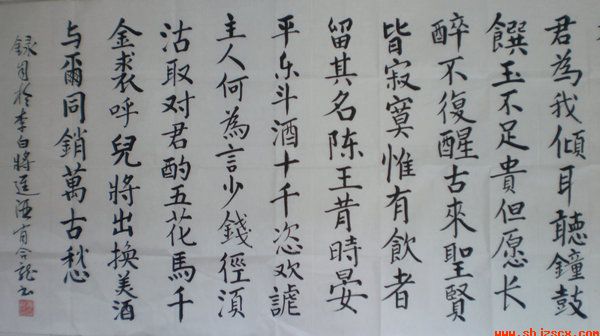 君為我傾耳聽鐘鼓
饌玉不足貴但愿长
醉不復醒古來聖賢
皆寂寞惟有飲者
留其名陈王昔時宴
平乐斗酒十千恣欢謔
主人何為言少錢徑須
沽取对君酌五花馬千
金裘呼兒將出換美酒
与爾同銷萬古愁
録自於李白將進酒
www.shjzscx.com